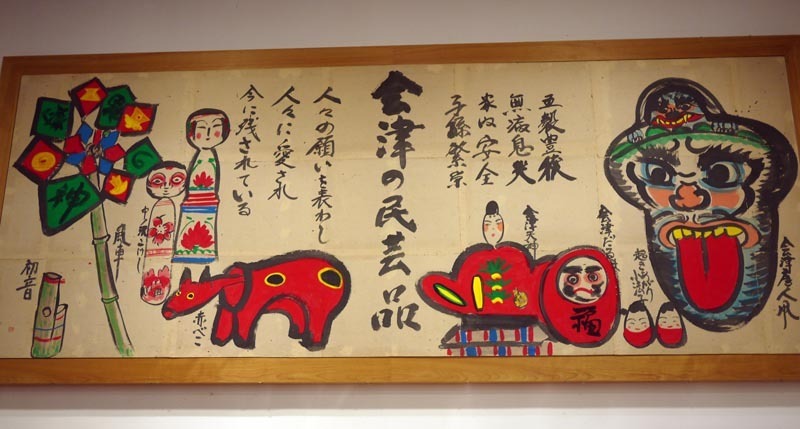 五穀豊穣
無病息災
家内安全
子孫繁栄
会津の民芸品
人々の願いを表わし
人々に愛され
今に残されている
会津唐人凧
起き上がり小法師
会津だるま
福
会津天神
赤べこ
風車
初音
神